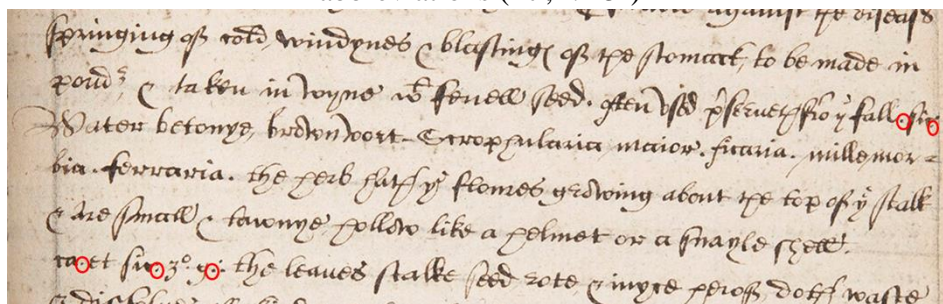 against the diseases
springing of cold, windynes & blasting of the stomack, to be made in
poudr, & taken in wyne wt fenell seed. often vsed pserueth fro ye fall. sic
Water betonye, brownwort. Scrophularia maior. ficaria. millemor=
bia. ferraria. the herb hath ye floures growing about the top of ye stalk
& are small & tawnye, hollow like a helmet or a snayle shell.
ca. et sic. 3o. g. the leaues stalke seed rote & iuyce herof doth waste